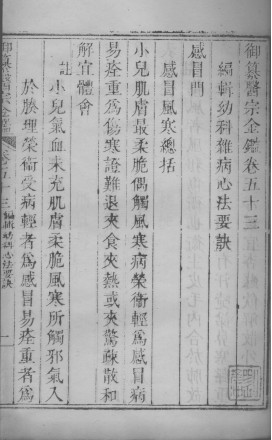 御纂醫宗金鑑卷五十三
編輯幼科雜病心法要訣
感冒門
感冒風寒總括
小兒肌膚最柔脆偶觸風寒病榮衛輕爲感冒病
易痊重爲傷寒證難退夾食夾熱或夾驚疎散和
解宜體會
註
小兒氣血未充肌膚柔脆風寒所觸邪氣入
於腠理榮衛受病輕者爲感冒易痊重者爲